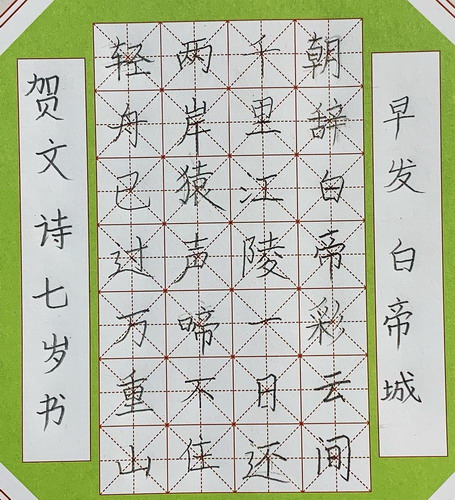 早发白帝城
朝辞白帝彩云间
千里江陵一日还
两岸猿声啼不住
轻舟已过万重山
贺文诗七岁书